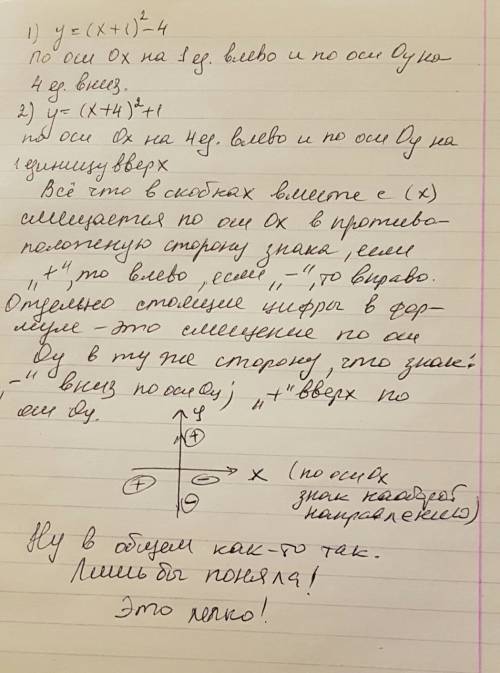 1) y=(x+1)²-4
по оси Ох на 1 ед. влево и по оси Оу на
4 ед. вниз.
2) y=(x+4)²+1
по оси Ох на 4 ед. влево и по оси Оу на
1 единицу вверх
Всё что в скобках вместе с (х)
смещается по оси Ох в противо-
положеную сторону знака, если
„+", то влево, если „-", то вправо.
Отдельно стоящие цифры в фор-
муле - это смещение по оси
Оу в ту же сторону, что знак:
„-" вниз по оси Оу; „+" вверх по
оси Оу.
y
+
+ - x (по оси Ох
знак наоборот
- направлению)
Ну в общем как-то так.
Лишь бы поняла!
Это легко!